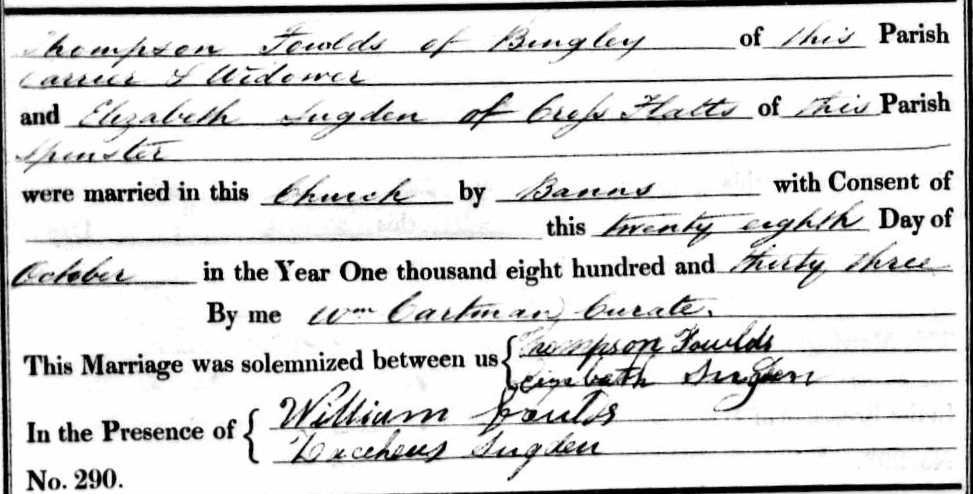 Thompson Fowlds of Bingley of this Parish
Carrier & Widower
and Elizabeth Sugden of Cross Flatts of this Parish
Spinster
were married in this Church by Banns with Consent of
this twenty eighth Day of
October in the Year One thousand eight hundred and thirty three
By me Wm Cartman, Curate.
This Marriage was solemnized between us { Thompson Fowlds
Elizabeth Sugden
In the Presence of { William Foulds
Zaccheus Sugden
No. 290.